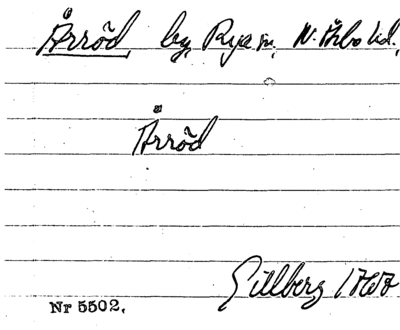 Årröd, by, Rya sn, N. Åsbo hd.
Årröd
Gillberg 1767
Nr 5502.